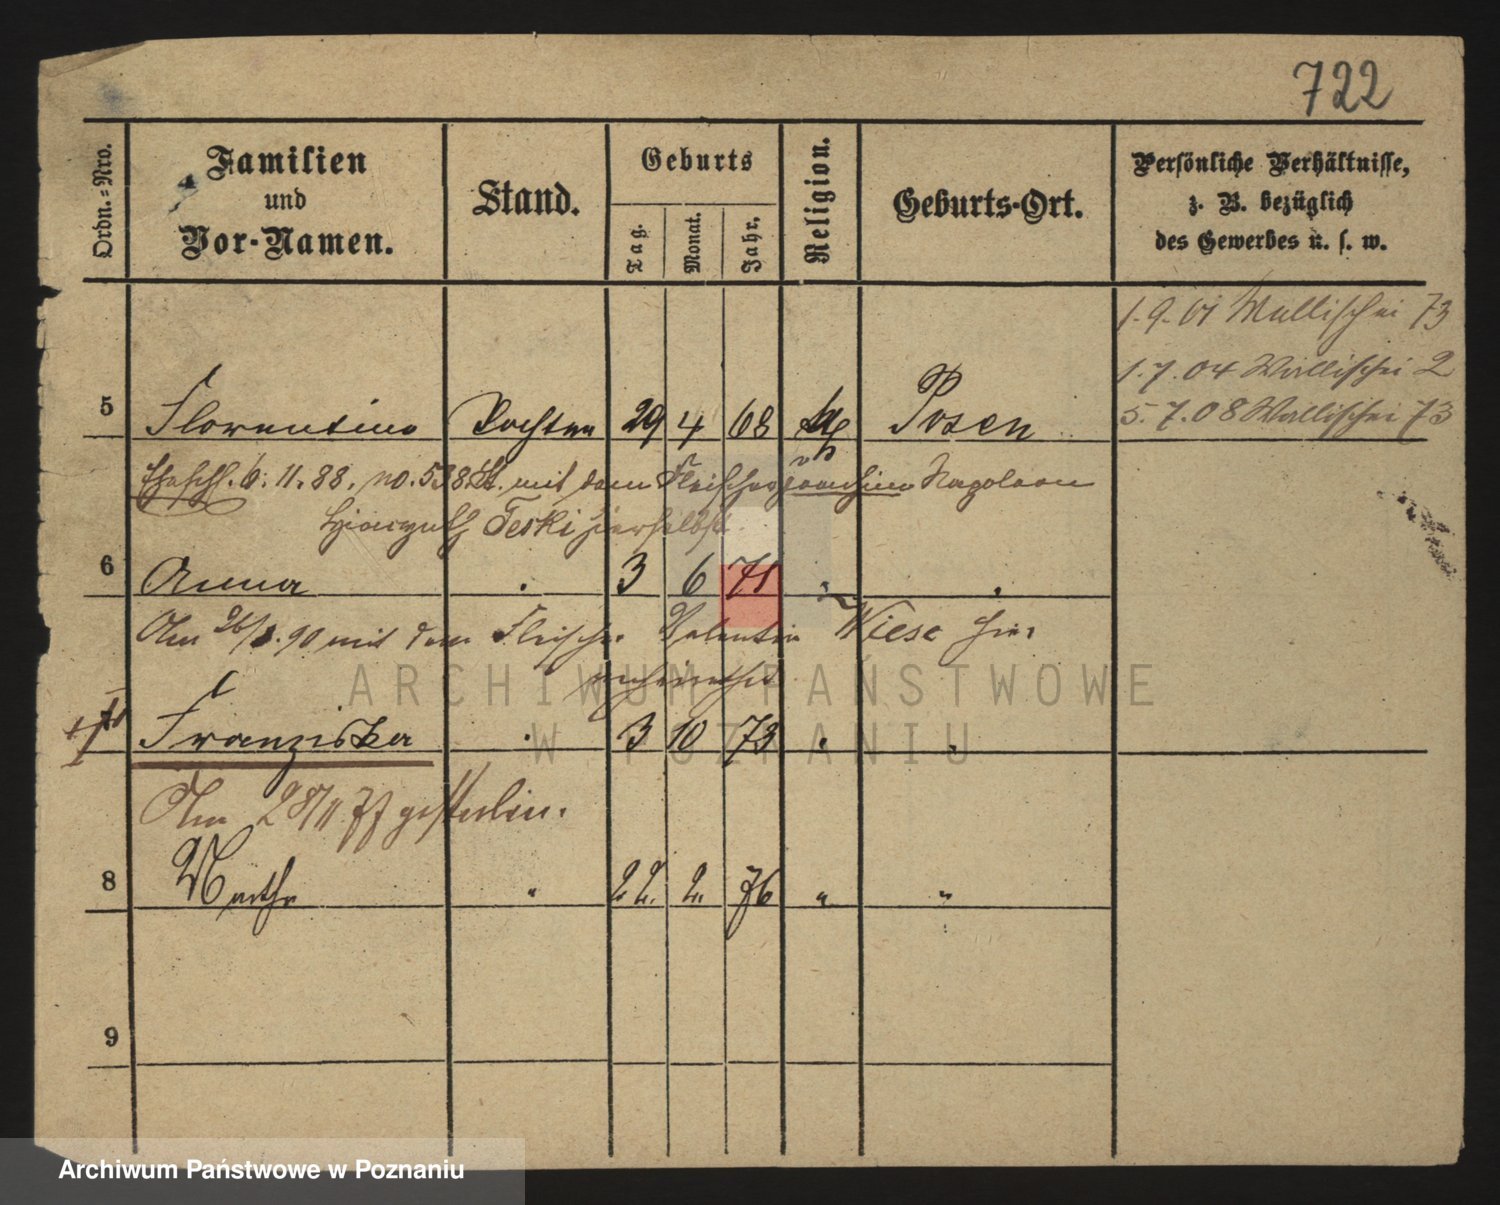 722
Ordn.-Nro.
Familien
und
Vor-Namen.
Stand.
Geburts
Tag.
Monat.
Jahr.
Religion.
Geburts-Ort.
Persönliche Verhältnisse,
z. B. bezüglich
des Gewerbes u. s. w.
1.9.01 Wallischei 73
1.7.04 Wallischei 2
5.7.08 Wallischei 73
5 Florentine Tochter 29 4 68 kath Posen
Eheschl. 6.11.88. no. 538 St. mit dem Fleischer Joachim Napoleon
Teski hierselbst.
6 Anna " 3 6 71 " "
Am 26/8.90 mit dem Fleischer Valentin Wiese hier
verheirathet
7 Franziska " 3 10 73 " "
Am 28/11 77 gestorben.
8 Marthe " 22. 2. 76 " "
9
ARCHIWUM PAŃSTWOWE
W POZNANIU
Archiwum Państwowe w Poznaniu